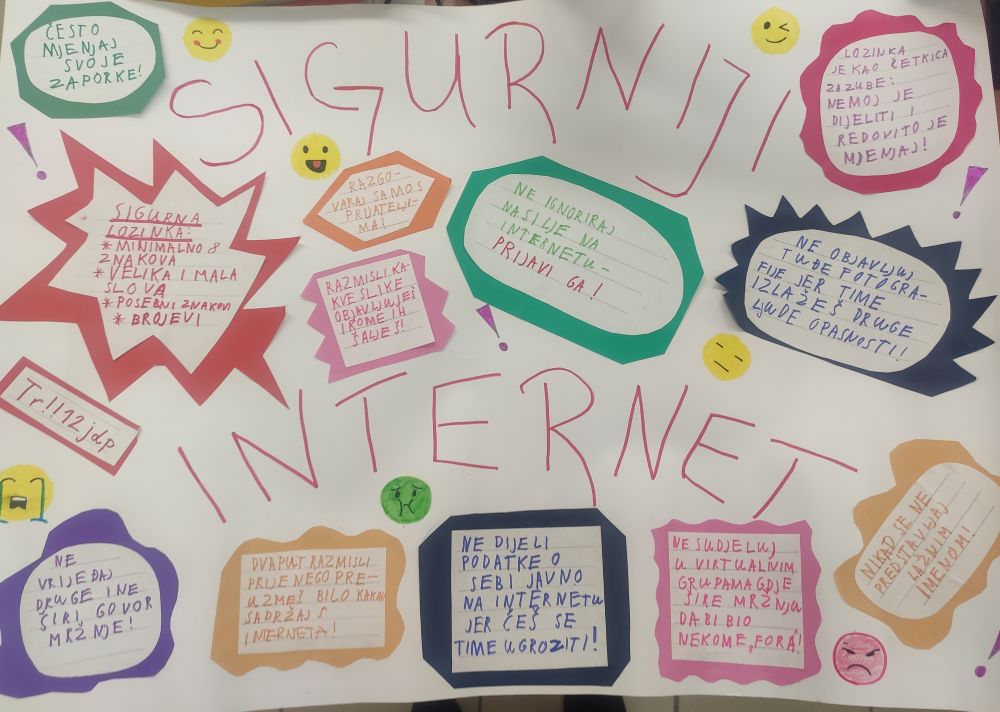 ČESTO
MJENJAJ
SVOJE
ZAPORKE!
SIGURNIJI
LOZINKA
JE KAO ČETKICA
ZA ZUBE:
NEMOJ JE
DIJELITI I
REDOVITO JE
MJENJAJ!
SIGURNA
LOZINKA:
* MINIMALNO 8
ZNAKOVA
* VELIKA I MALA
SLOVA
* POSEBNI ZNAKOVI
* BROJEVI
RAZGO-
VARAJ SAMO S
PRIJATELJI-
MA!
RAZMISLI KA-
KVE SLIKE
OBJAVLJUJEŠ
I KOME IH
ŠALJEŠ!
NE IGNORIRAJ
NASILJE NA
INTERNETU-
PRIJAVI GA!
NE OBJAVLJUJ
TUĐE FOTOGRA-
FIJE JER TIME
IZLAŽEŠ DRUGE
LJUDE OPASNOSTI!
Tr!!12jdp
INTERNET
NE
VRIJEĐAJ
DRUGE I NE
ŠIRI GOVOR
MRŽNJE!
DVAPUT RAZMISLI
PRIJE NEGO PRE-
UZMEŠ BILO KAKAV
SADRŽAJ S
INERNETA!
NE DIJELI
PODATKE O
SEBI JAVNO
NA INTERNETU
JER ĆEŠ SE
TIME UGROZITI!
NE SUDJELUJ
U VIRTUALNIM
GRUPAMA GDJE
ŠIRE MRŽNJU
DA BI BIO
NEKOME „FORA!
NIKAD SE NE
PREDSTAVLJAJ
LAŽNIM
IMENOM!